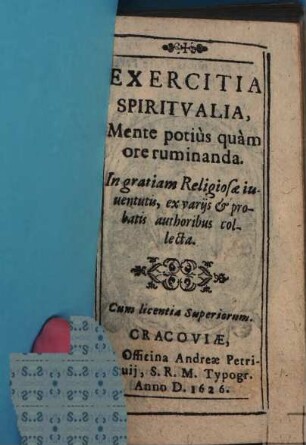 EXERCITIA
SPIRITVALIA,
Mente potiùs quàm
ore ruminanda.
In gratiam Religiosæ iu-
uentutis, ex varijs & pro-
batis authoribus col-
lecta.
Cum licentia Superiorum.
CRACOVIÆ,
Officina Andreæ Petri-
uij, S. R. M. Typogr.
Anno D. 1626.